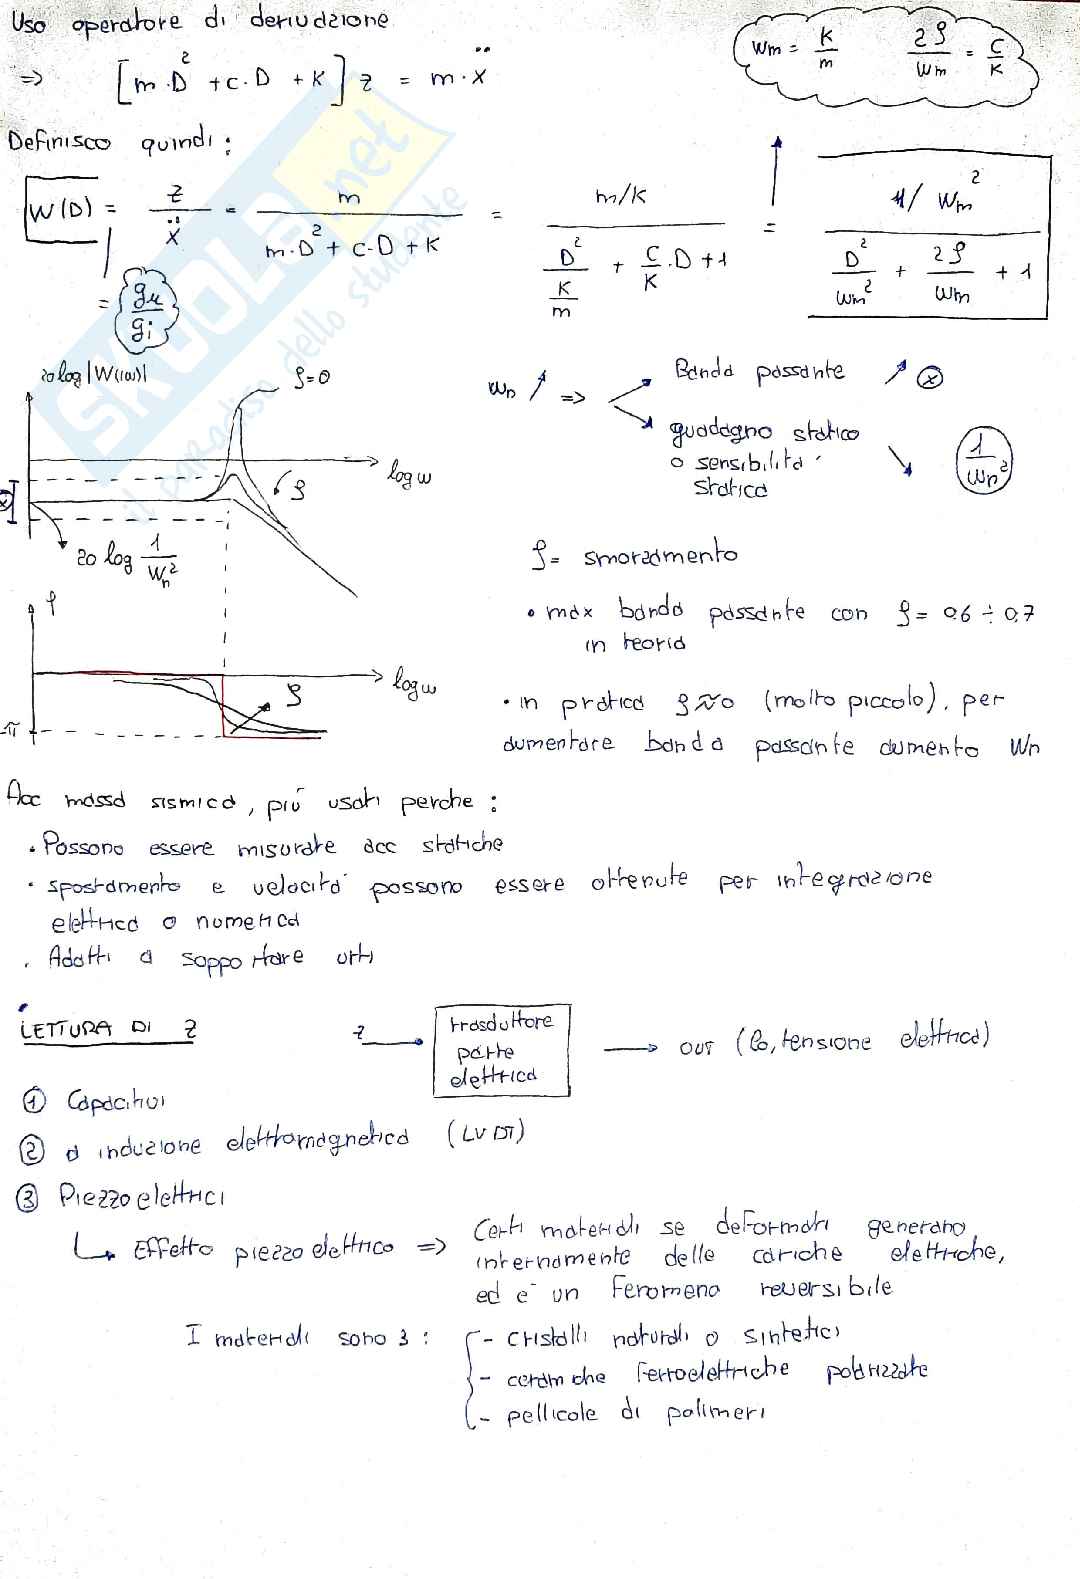 Uso operatore di derivazione
⇒ [m·D² + c·D + K] z = m·ẍ
Wm = K/m   2ρ/Wm = C/K
Definisco quindi:
W(D) = z/ẍ = m/(m·D² + c·D + K) = (m/K)/(D²/(K/m) + C/K·D + 1) = (1/Wm²)/(D²/Wm² + 2ρ/Wm + 1)
= gu/gi
20 log|W(iω)|
ρ=0
log ω
ρ
20 log 1/Wn²
Wn ↗ ⇒ Banda passante ↗ ⊗
guadagno statico
o sensibilità
statica ↘ 1/Wn²
ρ = smorzamento
• max banda passante con ρ = 0,6 ÷ 0,7
in teoria
φ
log ω
ρ
-π
• in pratica ρ≈0 (molto piccolo), per
aumentare banda passante aumento Wn
Acc massa sismica, più usati perche:
• Possono essere misurate acc statiche
• spostamento e velocità possono essere ottenute per integrazione
elettrica o numerica
• Adatti a sopportare urti
LETTURA DI Z
z → trasduttore
parte
elettrica → OUT (Co, tensione elettrica)
① Capacitivi
② a induzione elettromagnetica (LVDT)
③ Piezoelettrici
↳ Effetto piezoelettrico ⇒ Certi materiali se deformati generano
internamente delle cariche elettriche,
ed è un fenomeno reversibile
I materiali sono 3: - cristalli naturali o sintetici
- ceramiche ferroelettriche polarizzate
- pellicole di polimeri
SKUOLA.net
il paradiso dello studente